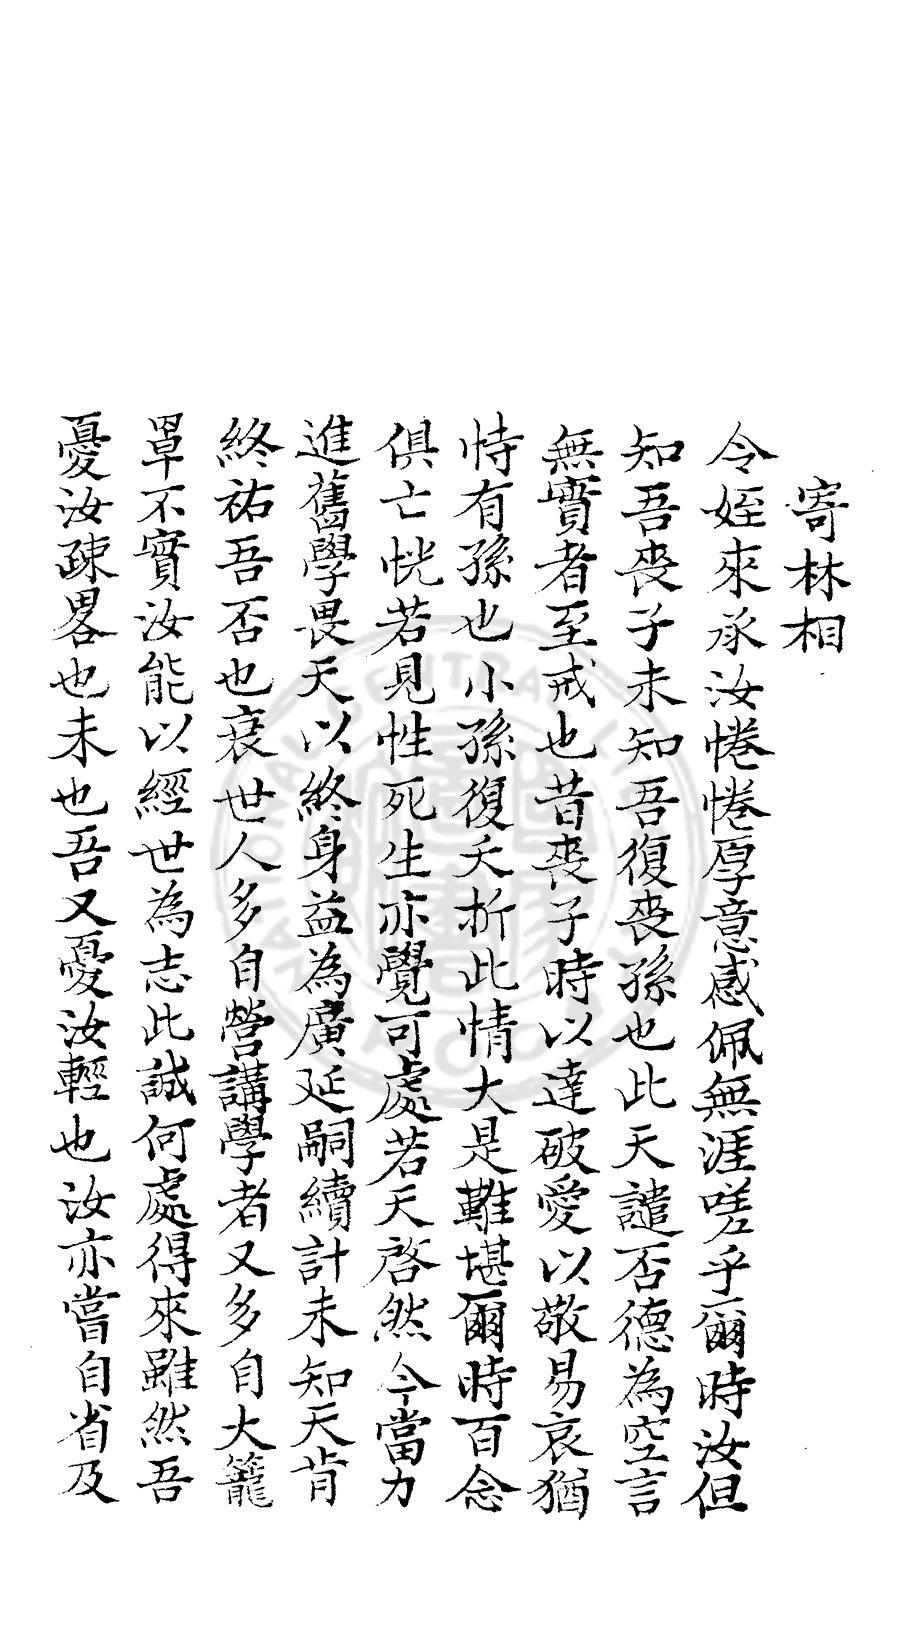 寄林相
令姪來承汝惓惓厚意感佩無涯嗟乎爾時汝但
知吾喪子未知吾復喪孫也此天譴否德為空言
無實者至戒也昔喪子時以達破愛以敬易哀猶
恃有孫也小孫復夭折此情大是難堪爾時百念
俱亡恍若見性死生亦覺可處若天啓然今當力
進舊學畏天以終身益為廣延嗣續計未知天肯
終祐吾否也衰世人多自營講學者又多自大籠
罩不實汝能以經世為志此誠何處得來雖然吾
憂汝疎畧也未也吾又憂汝輕也汝亦嘗自省及